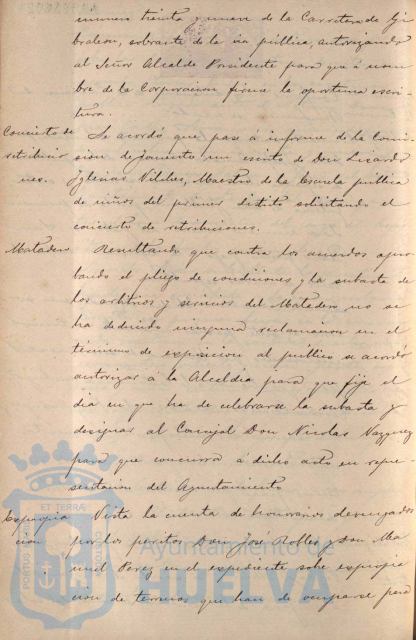 numero treinta y nueve de la Carretera de Gi-
braleon, sobrante de la via pública, autorizando
al Señor Alcalde Presidente para que á nom-
bre de la Corporacion firme la oportuna escri-
tura.
Concierto de retribucio nes. Se acordó que pase á informe de la Comi-
sion de fomento un escrito de Don Licardo
Iglesias Vilches, Maestro de la Escuela pública
de niños del primer distrito solicitando el
concierto de retribuciones.
Matadero Resultando que contra los acuerdos apro-
bando el pliego de condiciones y la subasta de
los arbitrios y servicios del Matadero no se
ha deducido ninguna reclamacion en el
término de exposicion al público se acordó
autorizar á la Alcaldia para que fije el
dia en que ha de celebrarse la subasta y
designar al Concejal Don Nicolas Vazquez
para que concurra á dicho acto en repre-
sentacion del Ayuntamiento
Expropia cion Vista la cuenta de honorarios devengados
por los peritos Don José Robles y Don Ma-
nuel Perez en el expediente sobre expropia-
cion de terrenos que han de ocuparse para
ET TERRÆ
PORTUS
Ayuntamiento de
HUELVA